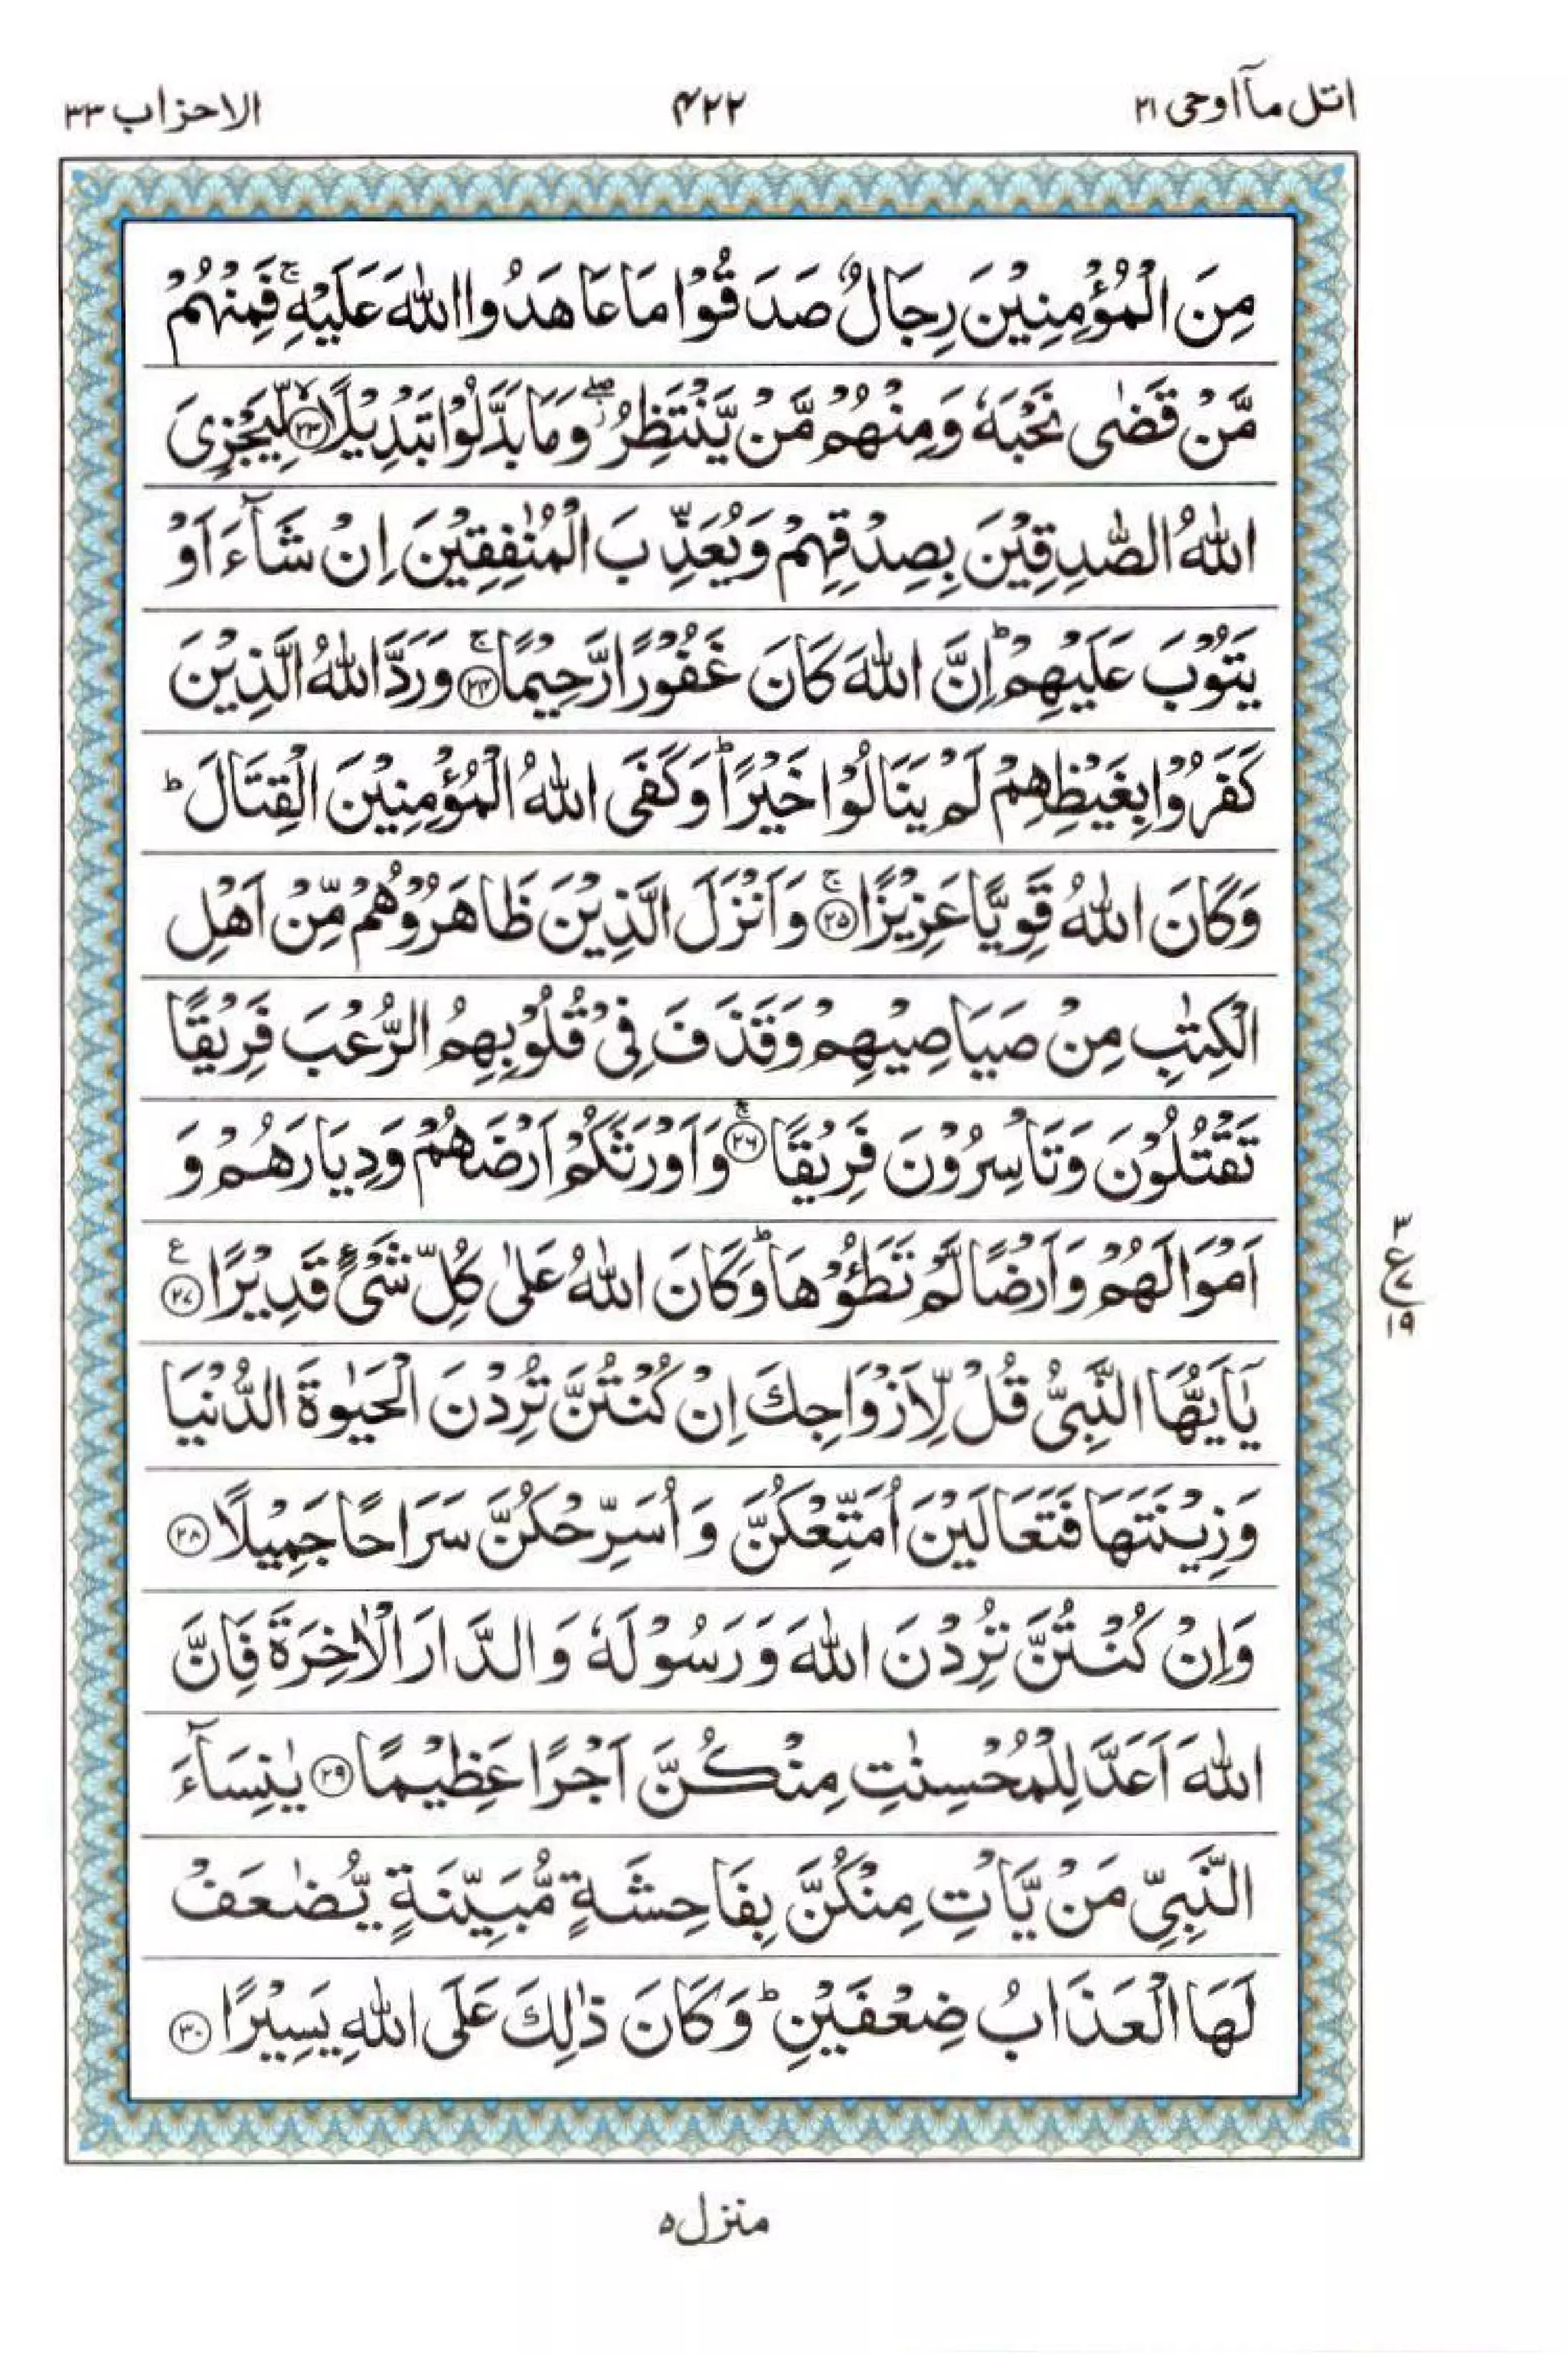 اتل ماۤ اوحی ۲۱
۴۲۲
الاحزاب ۳۳
مِنَ الْمُؤْمِنِیْنَ رِجَالٌ صَدَقُوْا مَا عَاهَدُوا اللّٰهَ عَلَیْهِ ۚ فَمِنْهُمْ
مَّنْ قَضٰی نَحْبَهٗ وَمِنْهُمْ مَّنْ یَّنْتَظِرُ ۖ وَمَا بَدَّلُوْا تَبْدِیْلًا ﴿۲۳﴾ لِّیَجْزِیَ
اللّٰهُ الصّٰدِقِیْنَ بِصِدْقِهِمْ وَیُعَذِّبَ الْمُنٰفِقِیْنَ اِنْ شَآءَ اَوْ
یَتُوْبَ عَلَیْهِمْ ؕ اِنَّ اللّٰهَ كَانَ غَفُوْرًا رَّحِیْمًا ۚ﴿۲۴﴾ وَرَدَّ اللّٰهُ الَّذِیْنَ
كَفَرُوْا بِغَیْظِهِمْ لَمْ یَنَالُوْا خَیْرًا ؕ وَكَفَی اللّٰهُ الْمُؤْمِنِیْنَ الْقِتَالَ ؕ
وَكَانَ اللّٰهُ قَوِیًّا عَزِیْزًا ۚ﴿۲۵﴾ وَاَنْزَلَ الَّذِیْنَ ظَاهَرُوْهُمْ مِّنْ اَهْلِ
الْكِتٰبِ مِنْ صَیَاصِیْهِمْ وَقَذَفَ فِیْ قُلُوْبِهِمُ الرُّعْبَ فَرِیْقًا
تَقْتُلُوْنَ وَتَاْسِرُوْنَ فَرِیْقًا ۚ﴿۲۶﴾ وَاَوْرَثَكُمْ اَرْضَهُمْ وَدِیَارَهُمْ وَ
اَمْوَالَهُمْ وَاَرْضًا لَّمْ تَطَـُٔوْهَا ؕ وَكَانَ اللّٰهُ عَلٰی كُلِّ شَیْءٍ قَدِیْرًا ﴿۲۷﴾ ع
۳
ع
۷
۱۹
یٰۤاَیُّهَا النَّبِیُّ قُلْ لِّاَزْوَاجِكَ اِنْ كُنْتُنَّ تُرِدْنَ الْحَیٰوةَ الدُّنْیَا
وَزِیْنَتَهَا فَتَعَالَیْنَ اُمَتِّعْكُنَّ وَاُسَرِّحْكُنَّ سَرَاحًا جَمِیْلًا ﴿۲۸﴾
وَاِنْ كُنْتُنَّ تُرِدْنَ اللّٰهَ وَرَسُوْلَهٗ وَالدَّارَ الْاٰخِرَةَ فَاِنَّ
اللّٰهَ اَعَدَّ لِلْمُحْسِنٰتِ مِنْكُنَّ اَجْرًا عَظِیْمًا ﴿۲۹﴾ یٰنِسَآءَ
النَّبِیِّ مَنْ یَّاْتِ مِنْكُنَّ بِفَاحِشَةٍ مُّبَیِّنَةٍ یُّضٰعَفْ
لَهَا الْعَذَابُ ضِعْفَیْنِ ؕ وَكَانَ ذٰلِكَ عَلَی اللّٰهِ یَسِیْرًا ﴿۳۰﴾
منزل ۵